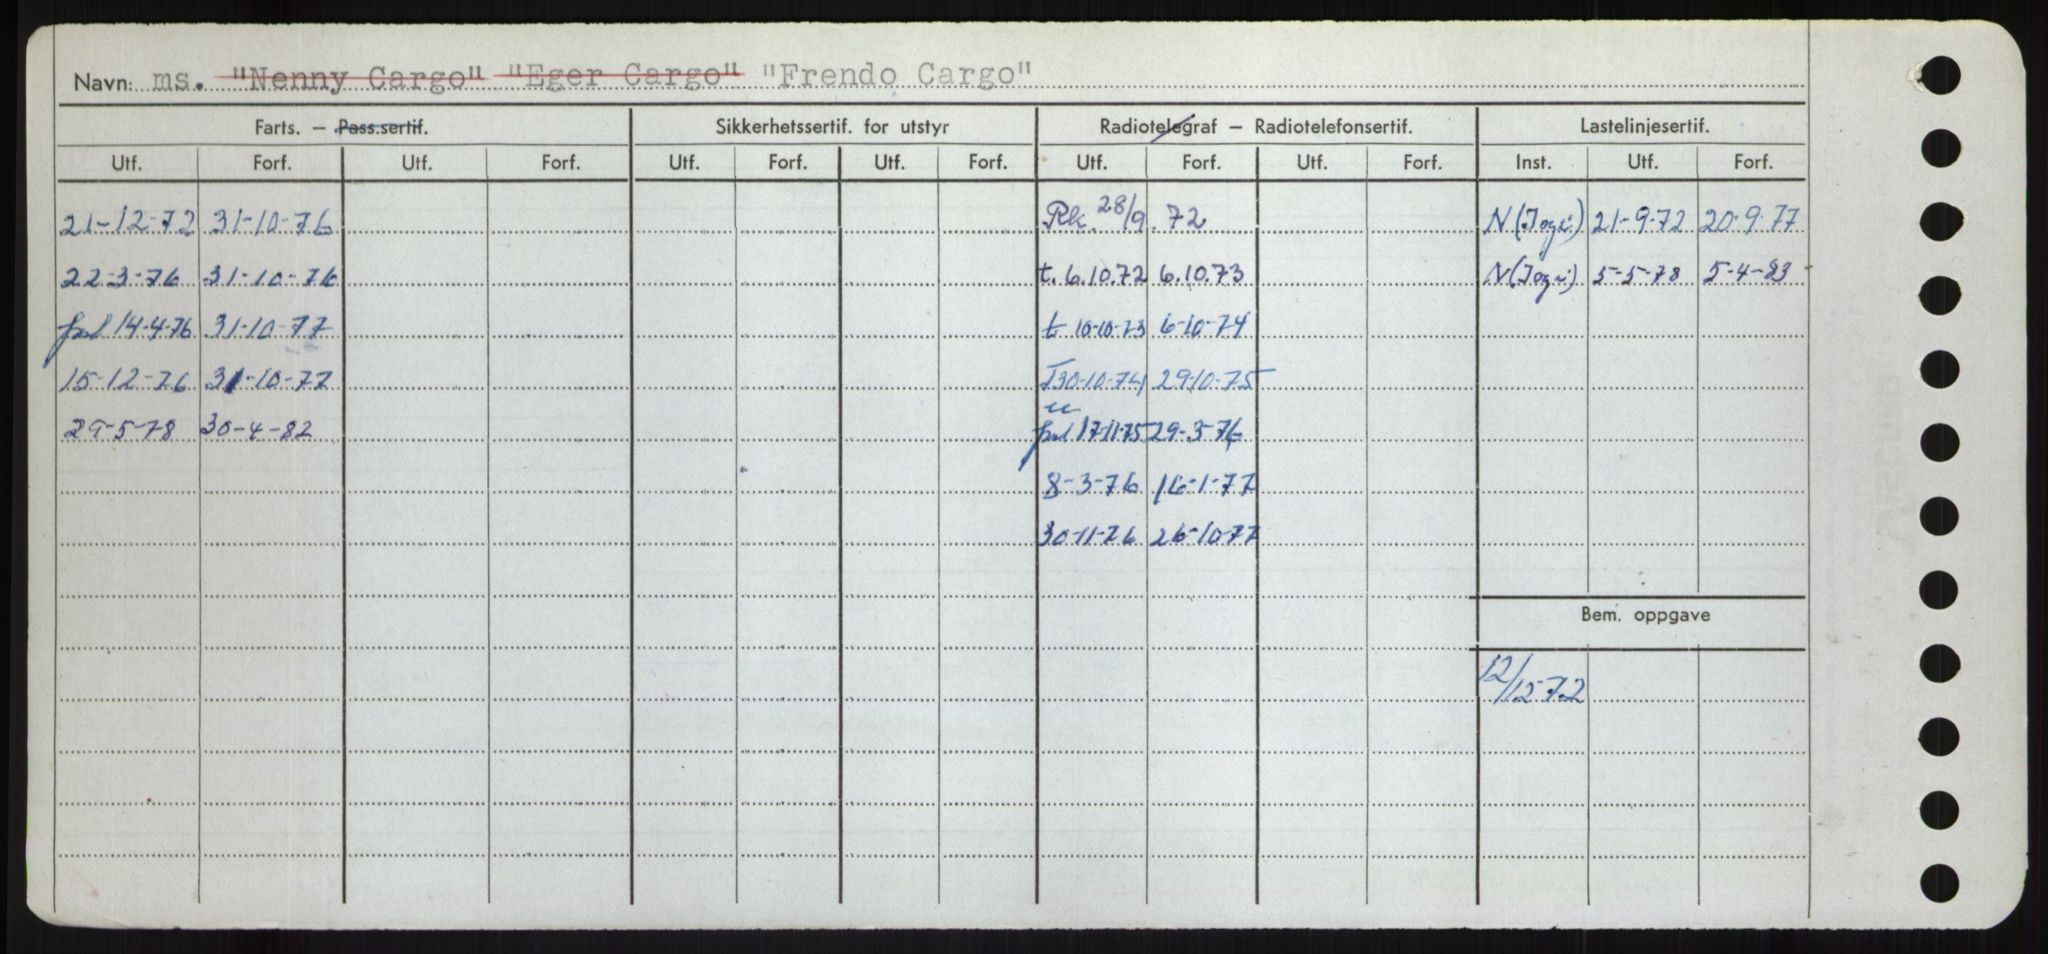 Navn: ms. "Nenny Cargo" "Eger Cargo" "Frendo Cargo"
Farts. – Pass.sertif. Sikkerhetssertif. for utstyr Radiotelegraf – Radiotelefonsertif. Lastelinjesertif.
Utf. Forf. Utf. Forf. Utf. Forf. Utf. Forf. Utf. Forf. Utf. Forf. Inst. Utf. Forf.
21-12-72 31-10-76 Rk. 28/9. 72 N (Jogi) 21-9-72 20-9-77
22-3-76 31-10-76 t. 6.10.72 6.10.73 N (Jogi) 5-5-78 5-4-83
14-4-76 31-10-77 t 10-10-73 6-10-74
15-12-76 31-10-77 T30-10-74 29-10-75
29-5-78 30-4-82 17-11-75 29-3-76
8-3-76 16-1-77
30-11-76 26-10-77
Bem. oppgave
12/12-72